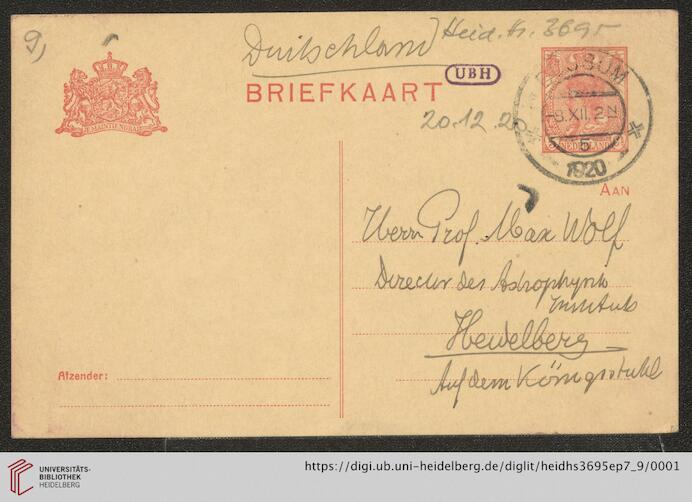 9,
Duitschland
Heid. Hs. 3695
UBH
BRIEFKAART
20.12.20
BUSSUM
-8.XII. 2-N
5
1920
NEDERLAND
JE MAINTIENDRAI
AAN
Herrn Prof. Max Wolf
Director des Astrophysik
Instituts
Heidelberg
Auf dem Königsstuhl
Afzender:
UNIVERSITÄTS-
BIBLIOTHEK
HEIDELBERG
https://digi.ub.uni-heidelberg.de/diglit/heidhs3695ep7_9/0001